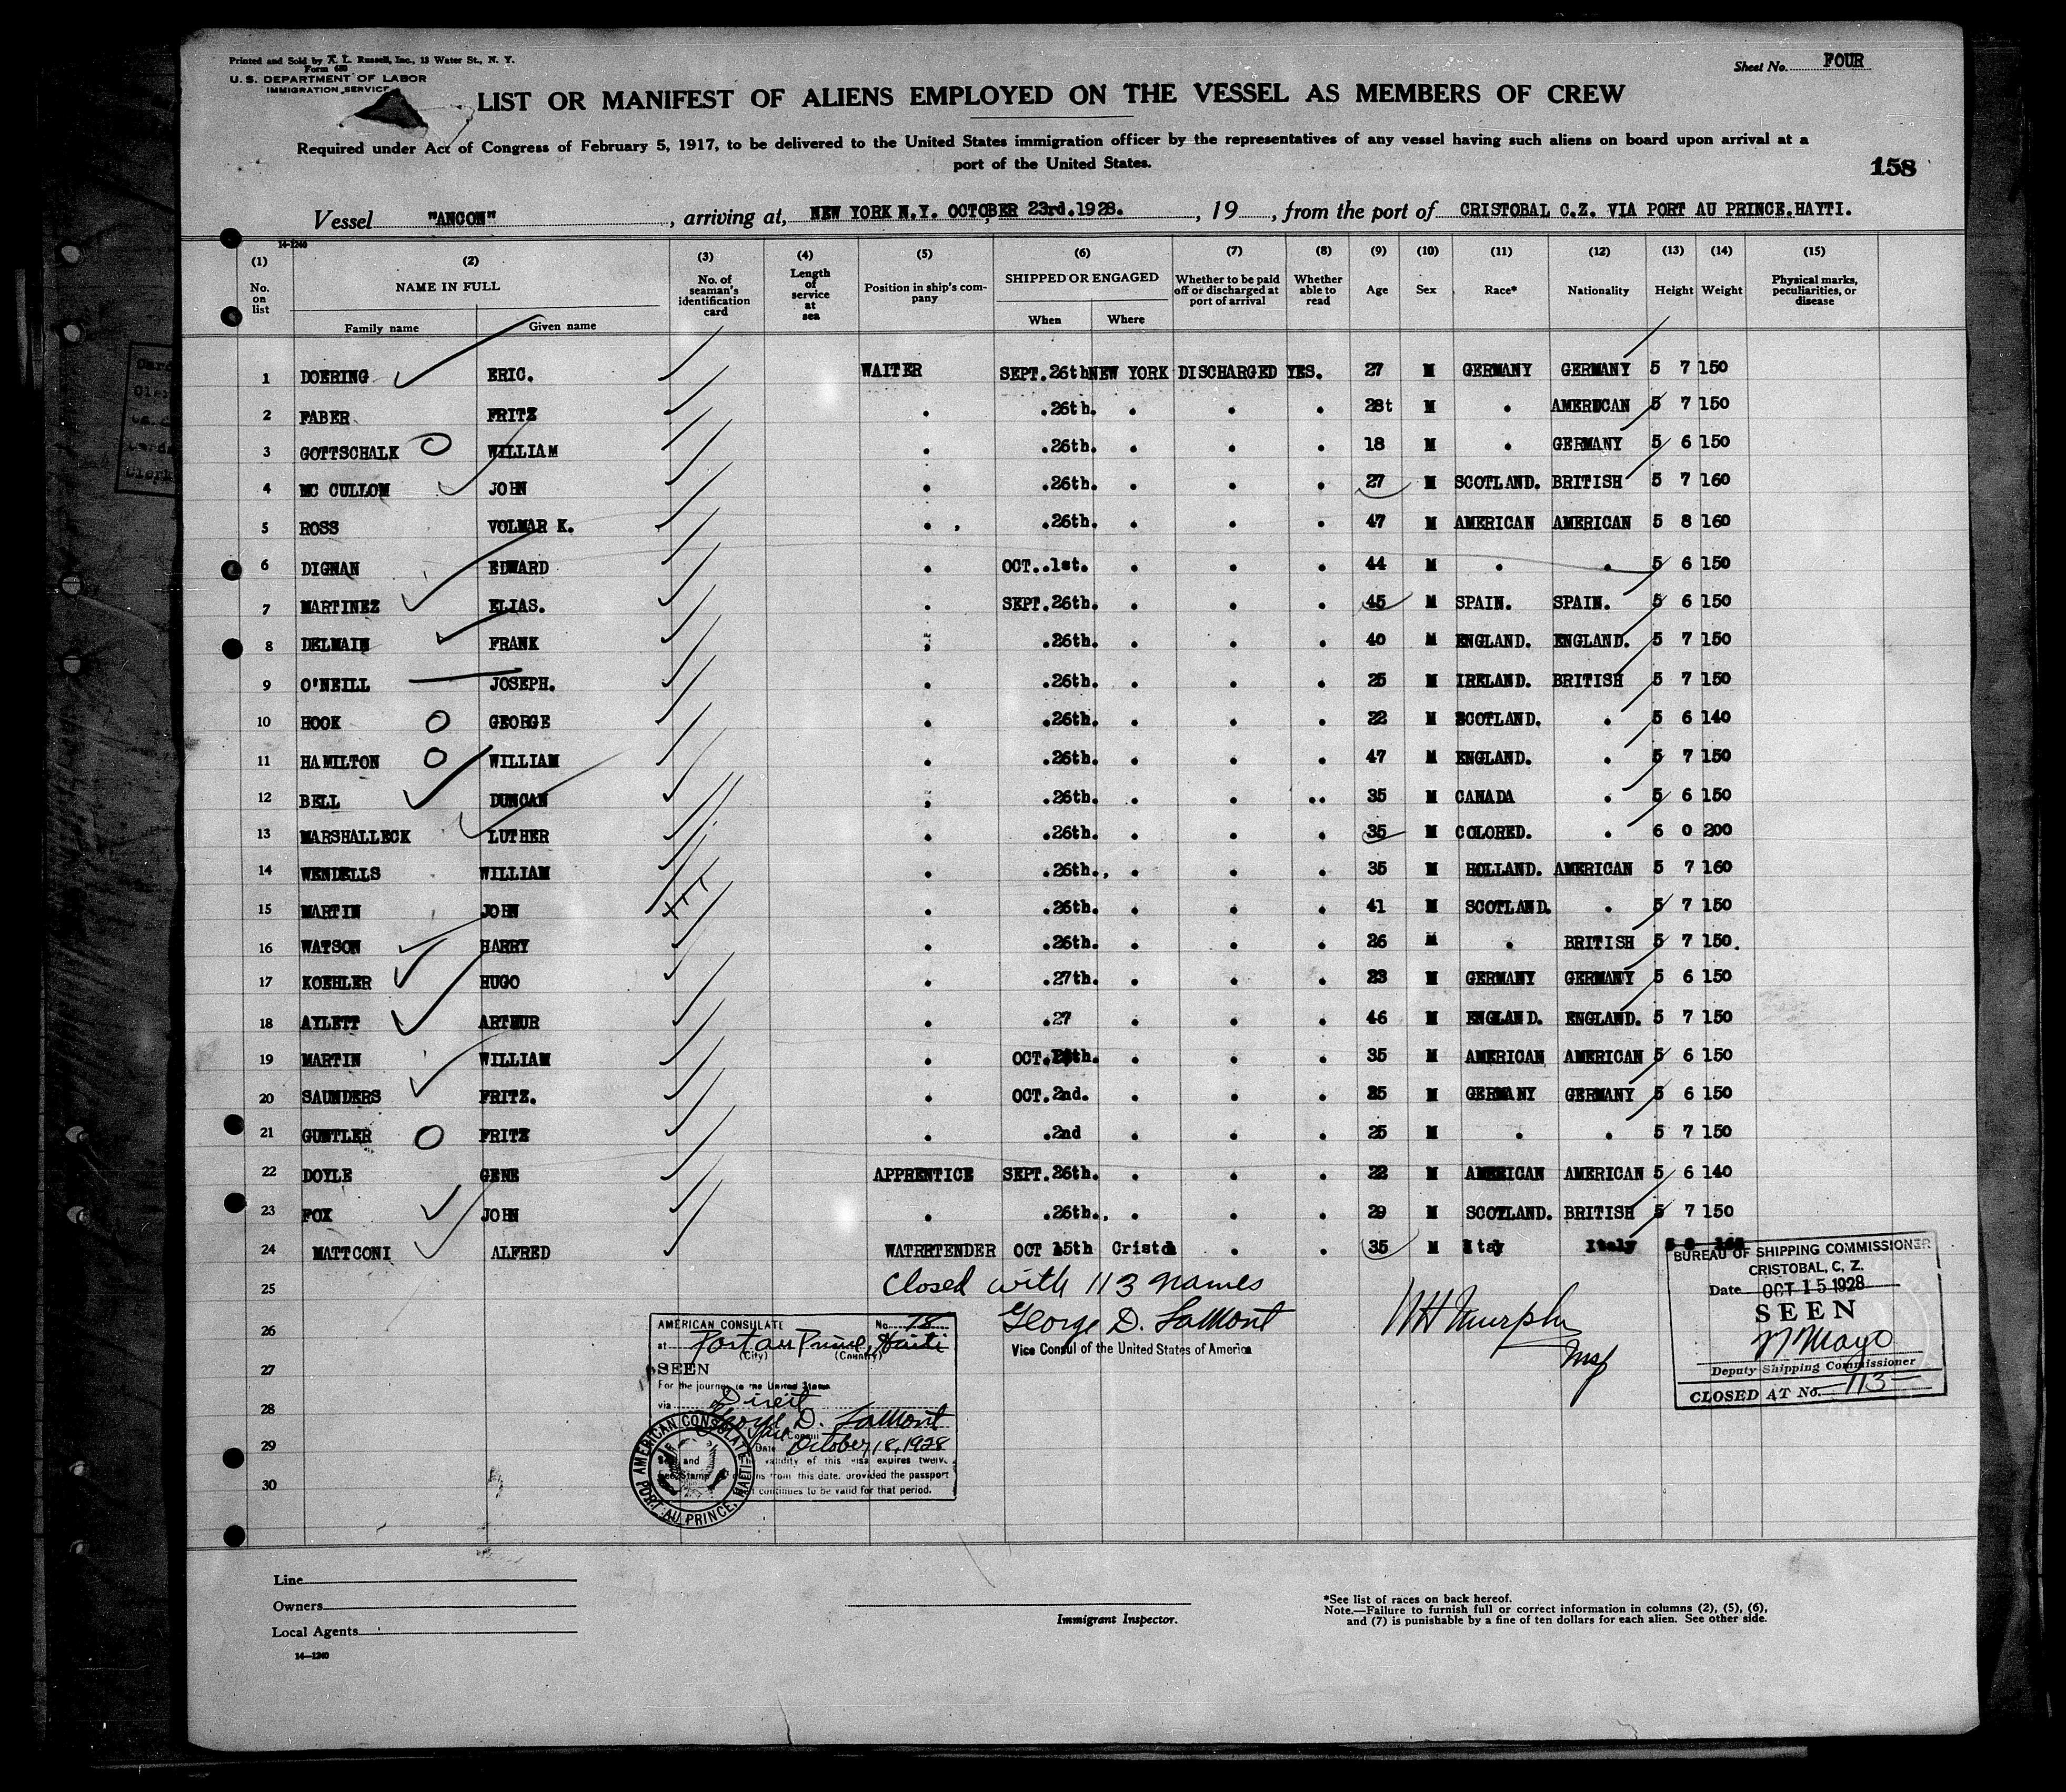 Printed and Sold by A. L. Russell, Inc., 13 Water St., N. Y.
Form 680
U. S. DEPARTMENT OF LABOR
IMMIGRATION SERVICE
Sheet No. FOUR
LIST OR MANIFEST OF ALIENS EMPLOYED ON THE VESSEL AS MEMBERS OF CREW
Required under Act of Congress of February 5, 1917, to be delivered to the United States immigration officer by the representatives of any vessel having such aliens on board upon arrival at a
port of the United States.
158
Vessel "ANCON", arriving at, NEW YORK N.Y. OCTOBER 23rd.1928., 19, from the port of CRISTOBAL C.Z. VIA PORT AU PRINCE.HAYTI.
14-1240
(1) (2) (3) (4) (5) (6) (7) (8) (9) (10) (11) (12) (13) (14) (15)
No. on list NAME IN FULL No. of seaman's identification card Length of service at sea Position in ship's company SHIPPED OR ENGAGED Whether to be paid off or discharged at port of arrival Whether able to read Age Sex Race* Nationality Height Weight Physical marks, peculiarities, or disease
Family name Given name When Where
1 DOERING ERIC. WAITER SEPT.26th NEW YORK DISCHARGED YES. 27 M GERMANY GERMANY 5 7 150
2 FABER FRITZ . .26th. . . . 28t M . AMERICAN 5 7 150
3 GOTTSCHALK WILLIAM . .26th. . . . 18 M . GERMANY 5 6 150
4 MC CULLOM JOHN . .26th. . . . 27 M SCOTLAND. BRITISH 5 7 160
5 ROSS VOLMAR K. . . .26th. . . . 47 M AMERICAN AMERICAN 5 8 160
6 DIGNAN EDWARD . OCT..1st. . . . 44 M . . 5 6 150
7 MARTINEZ ELIAS. . SEPT.26th. . . . 45 M SPAIN. SPAIN. 5 6 150
8 DELMAIN FRANK . .26th. . . . 40 M ENGLAND. ENGLAND. 5 7 150
9 O'NEILL JOSEPH. . .26th. . . . 25 M IRELAND. BRITISH 5 7 150
10 HOOK GEORGE . .26th. . . . 22 M SCOTLAND. . 5 6 140
11 HAMILTON WILLIAM . .26th. . . . 47 M ENGLAND. . 5 7 150
12 BELL DUNCAN . .26th. . . .. 35 M CANADA . 5 6 150
13 MARSHALLECK LUTHER . .26th. . . . 35 M COLORED. . 6 0 200
14 WENDELLS WILLIAM . .26th., . . . 35 M HOLLAND. AMERICAN 5 7 160
15 MARTIN JOHN . .26th. . . . 41 M SCOTLAND. . 5 7 150
16 WATSON HARRY . .26th. . . . 26 M . BRITISH 5 7 150.
17 KOEHLER HUGO . .27th. . . . 23 M GERMANY GERMANY 5 6 150
18 AYLETT ARTHUR . .27 . . . 46 M ENGLAND. ENGLAND. 5 7 150
19 MARTIN WILLIAM . OCT. . . . 35 M AMERICAN AMERICAN 5 6 150
20 SAUNDERS FRITZ. . OCT.2nd. . . . 25 M GERMANY GERMANY 5 6 150
21 GUNTLER FRITZ . .2nd . . . 25 M . . 5 7 150
22 DOYLE GENE APPRENTICE SEPT.26th. . . . 22 M AMERICAN AMERICAN 5 6 140
23 FOX JOHN . .26th., . . . 29 M SCOTLAND. BRITISH 5 7 150
24 MATTCONI ALFRED WATRRTENDER OCT 15th Cristo . . 35 M Italy
25 Closed with 113 names
26 George D. LaMont
Vice Consul of the United States of America
27
28
29
30
WH Murphy
Insp
AMERICAN CONSULATE No. 78
at Port au Prince, Haiti
(City) (Country)
SEEN
For the journey to the United States
via Direct
George D. LaMont
Vice Consul
Date October 18, 1928
validity of this visa expires twelve
from this date, provided the passport
continues to be valid for that period.
AMERICAN CONSULATE
PORT AU PRINCE, HAITI
BUREAU OF SHIPPING COMMISSIONER
CRISTOBAL, C. Z.
Date OCT 15 1928
SEEN
Mayo
Deputy Shipping Commissioner
CLOSED AT No. 113
Line
Owners
Local Agents
14—1240
Immigrant Inspector.
*See list of races on back hereof.
Note.—Failure to furnish full or correct information in columns (2), (5), (6),
and (7) is punishable by a fine of ten dollars for each alien. See other side.